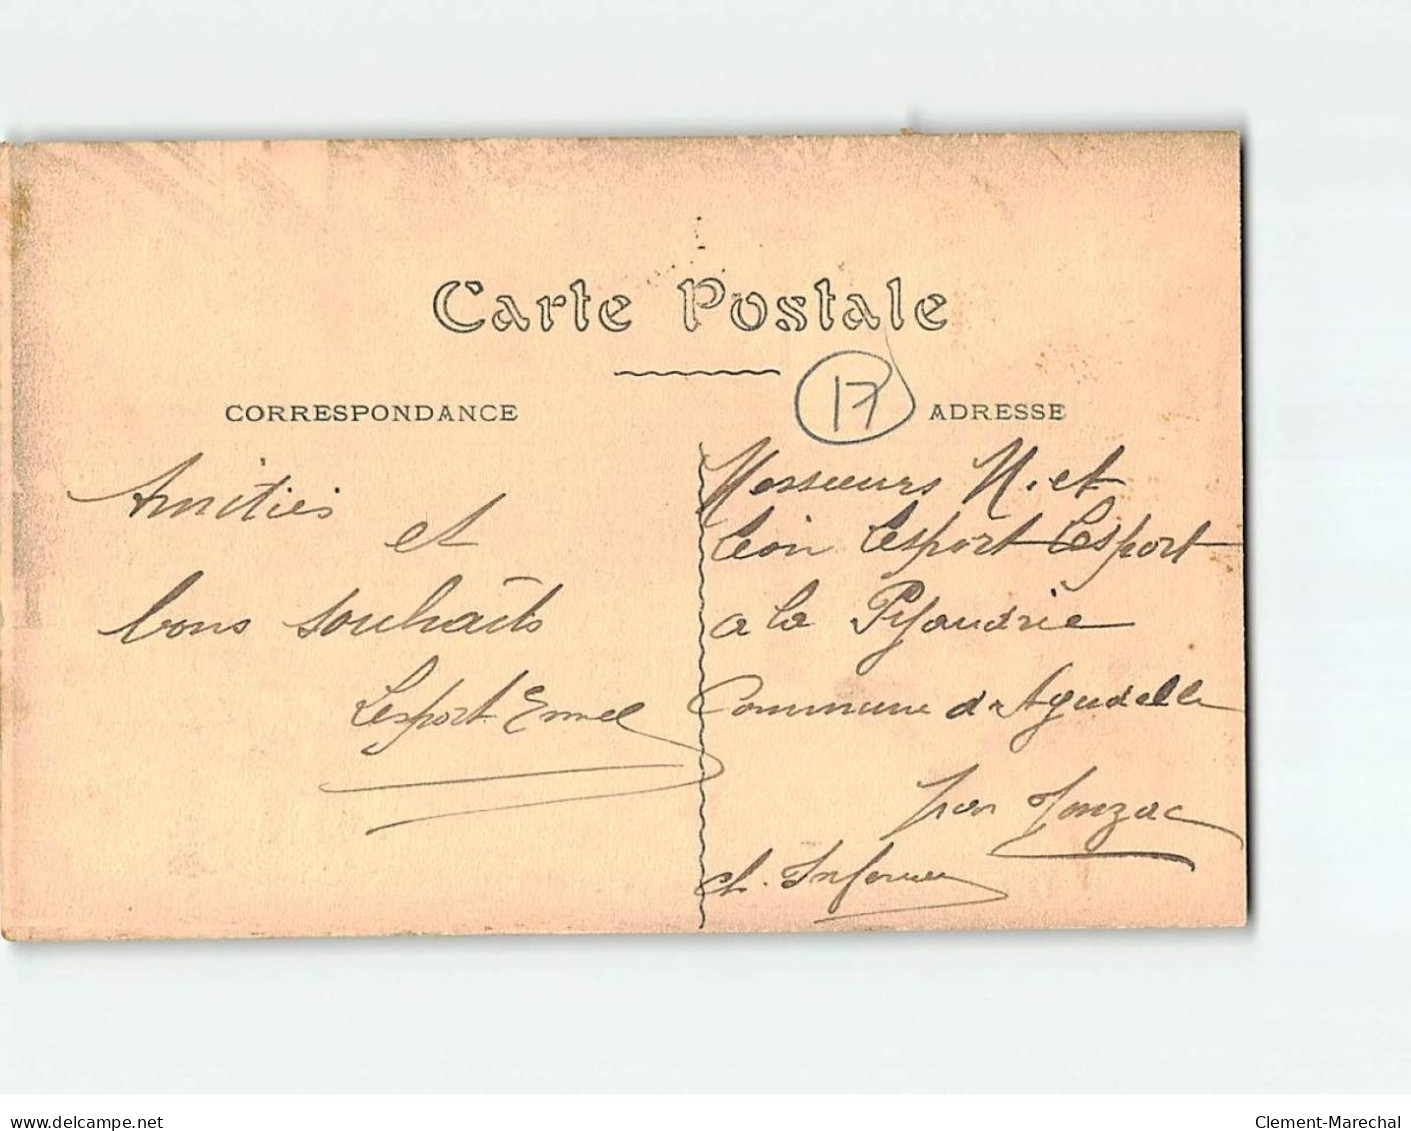 Carte Postale
CORRESPONDANCE
17
ADRESSE
Amitiés
et
bons souhaits
Lesport Emel
Messieurs N. et
Léon Lesport Lesport
a la
Commune d'Agudelle
par Jonzac
ch. Inférieure
www.delcampe.net
Clement-Marechal